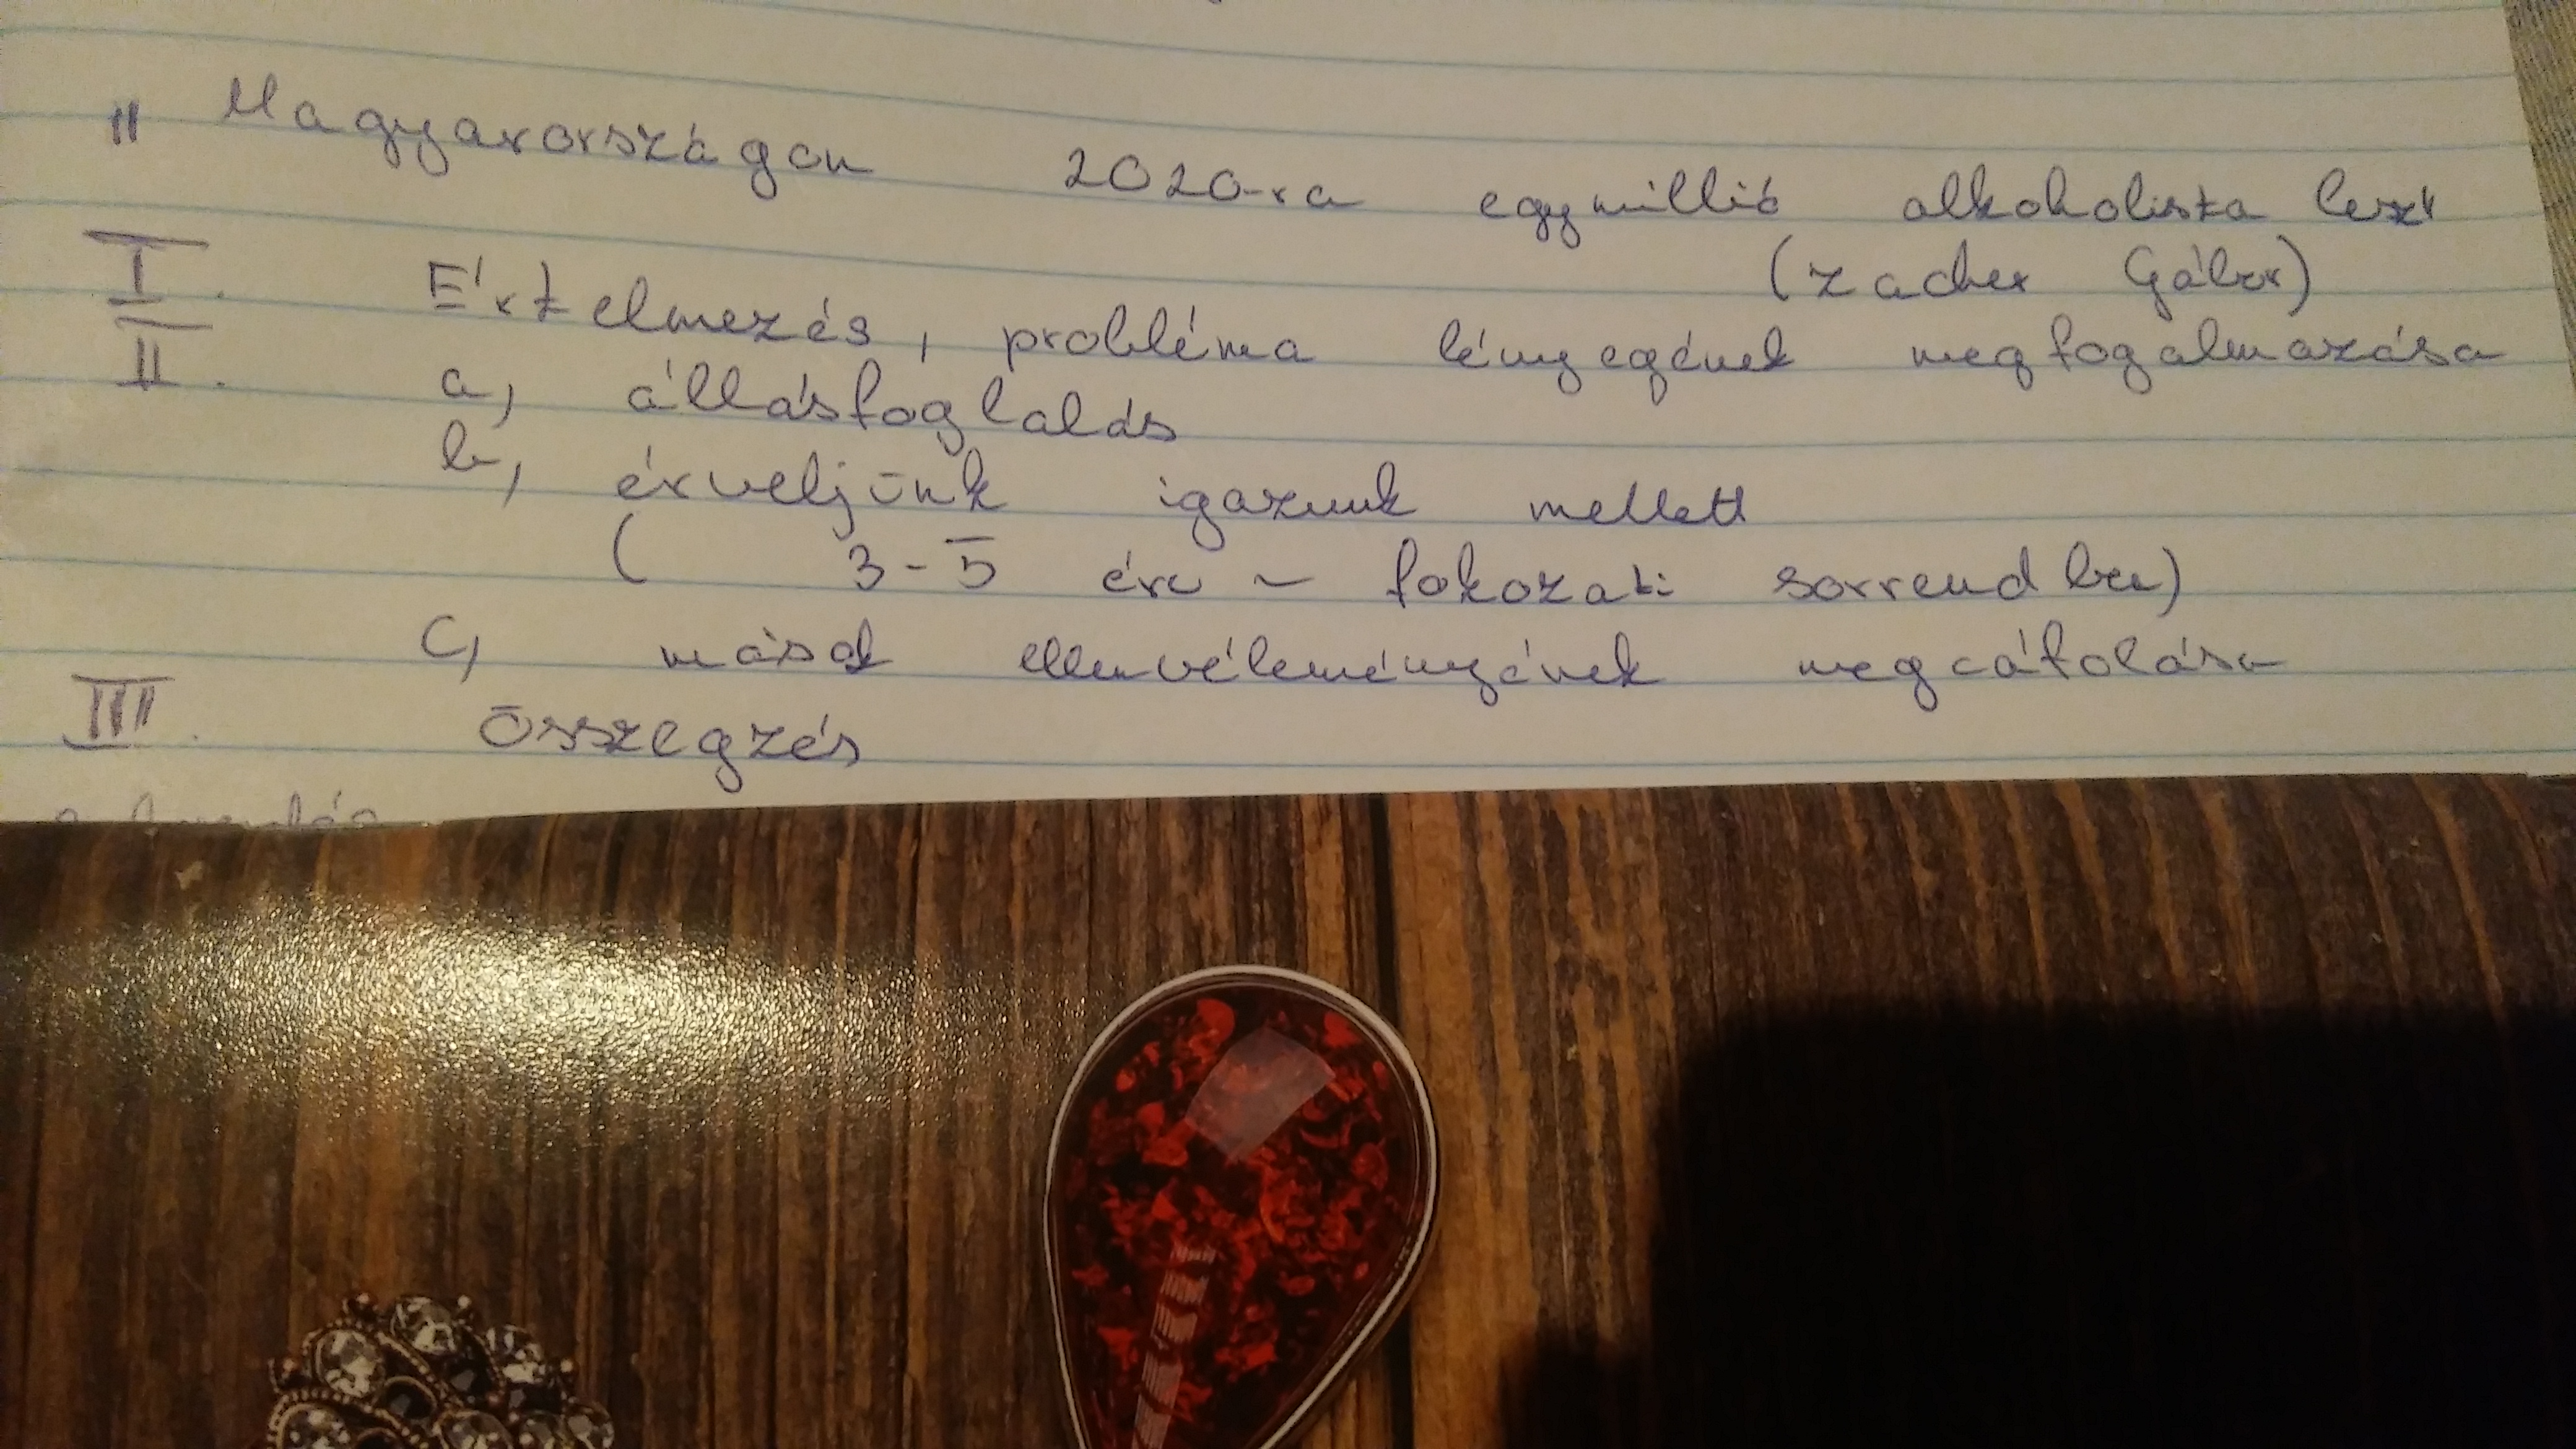 " Magyarországon 2020-ra egymillió alkoholista lesz"
(Zacher Gábor)
I. Értelmezés, probléma lényegének megfogalmazása
II. a, állásfoglalás
b, érveljünk igazunk mellett
( 3-5 érv ~ fokozati sorrendben)
c, mások ellenvéleményének megcáfolása
III. összegzés